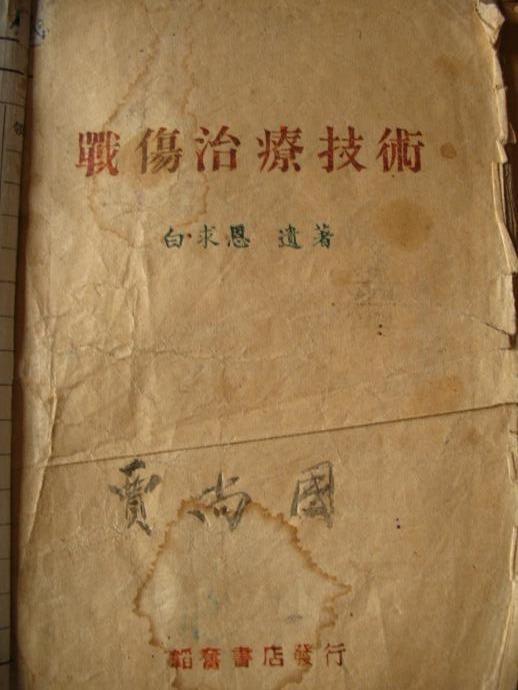 戰傷治療技術
白求恩 遺著
賈尚國
韜奮書店發行